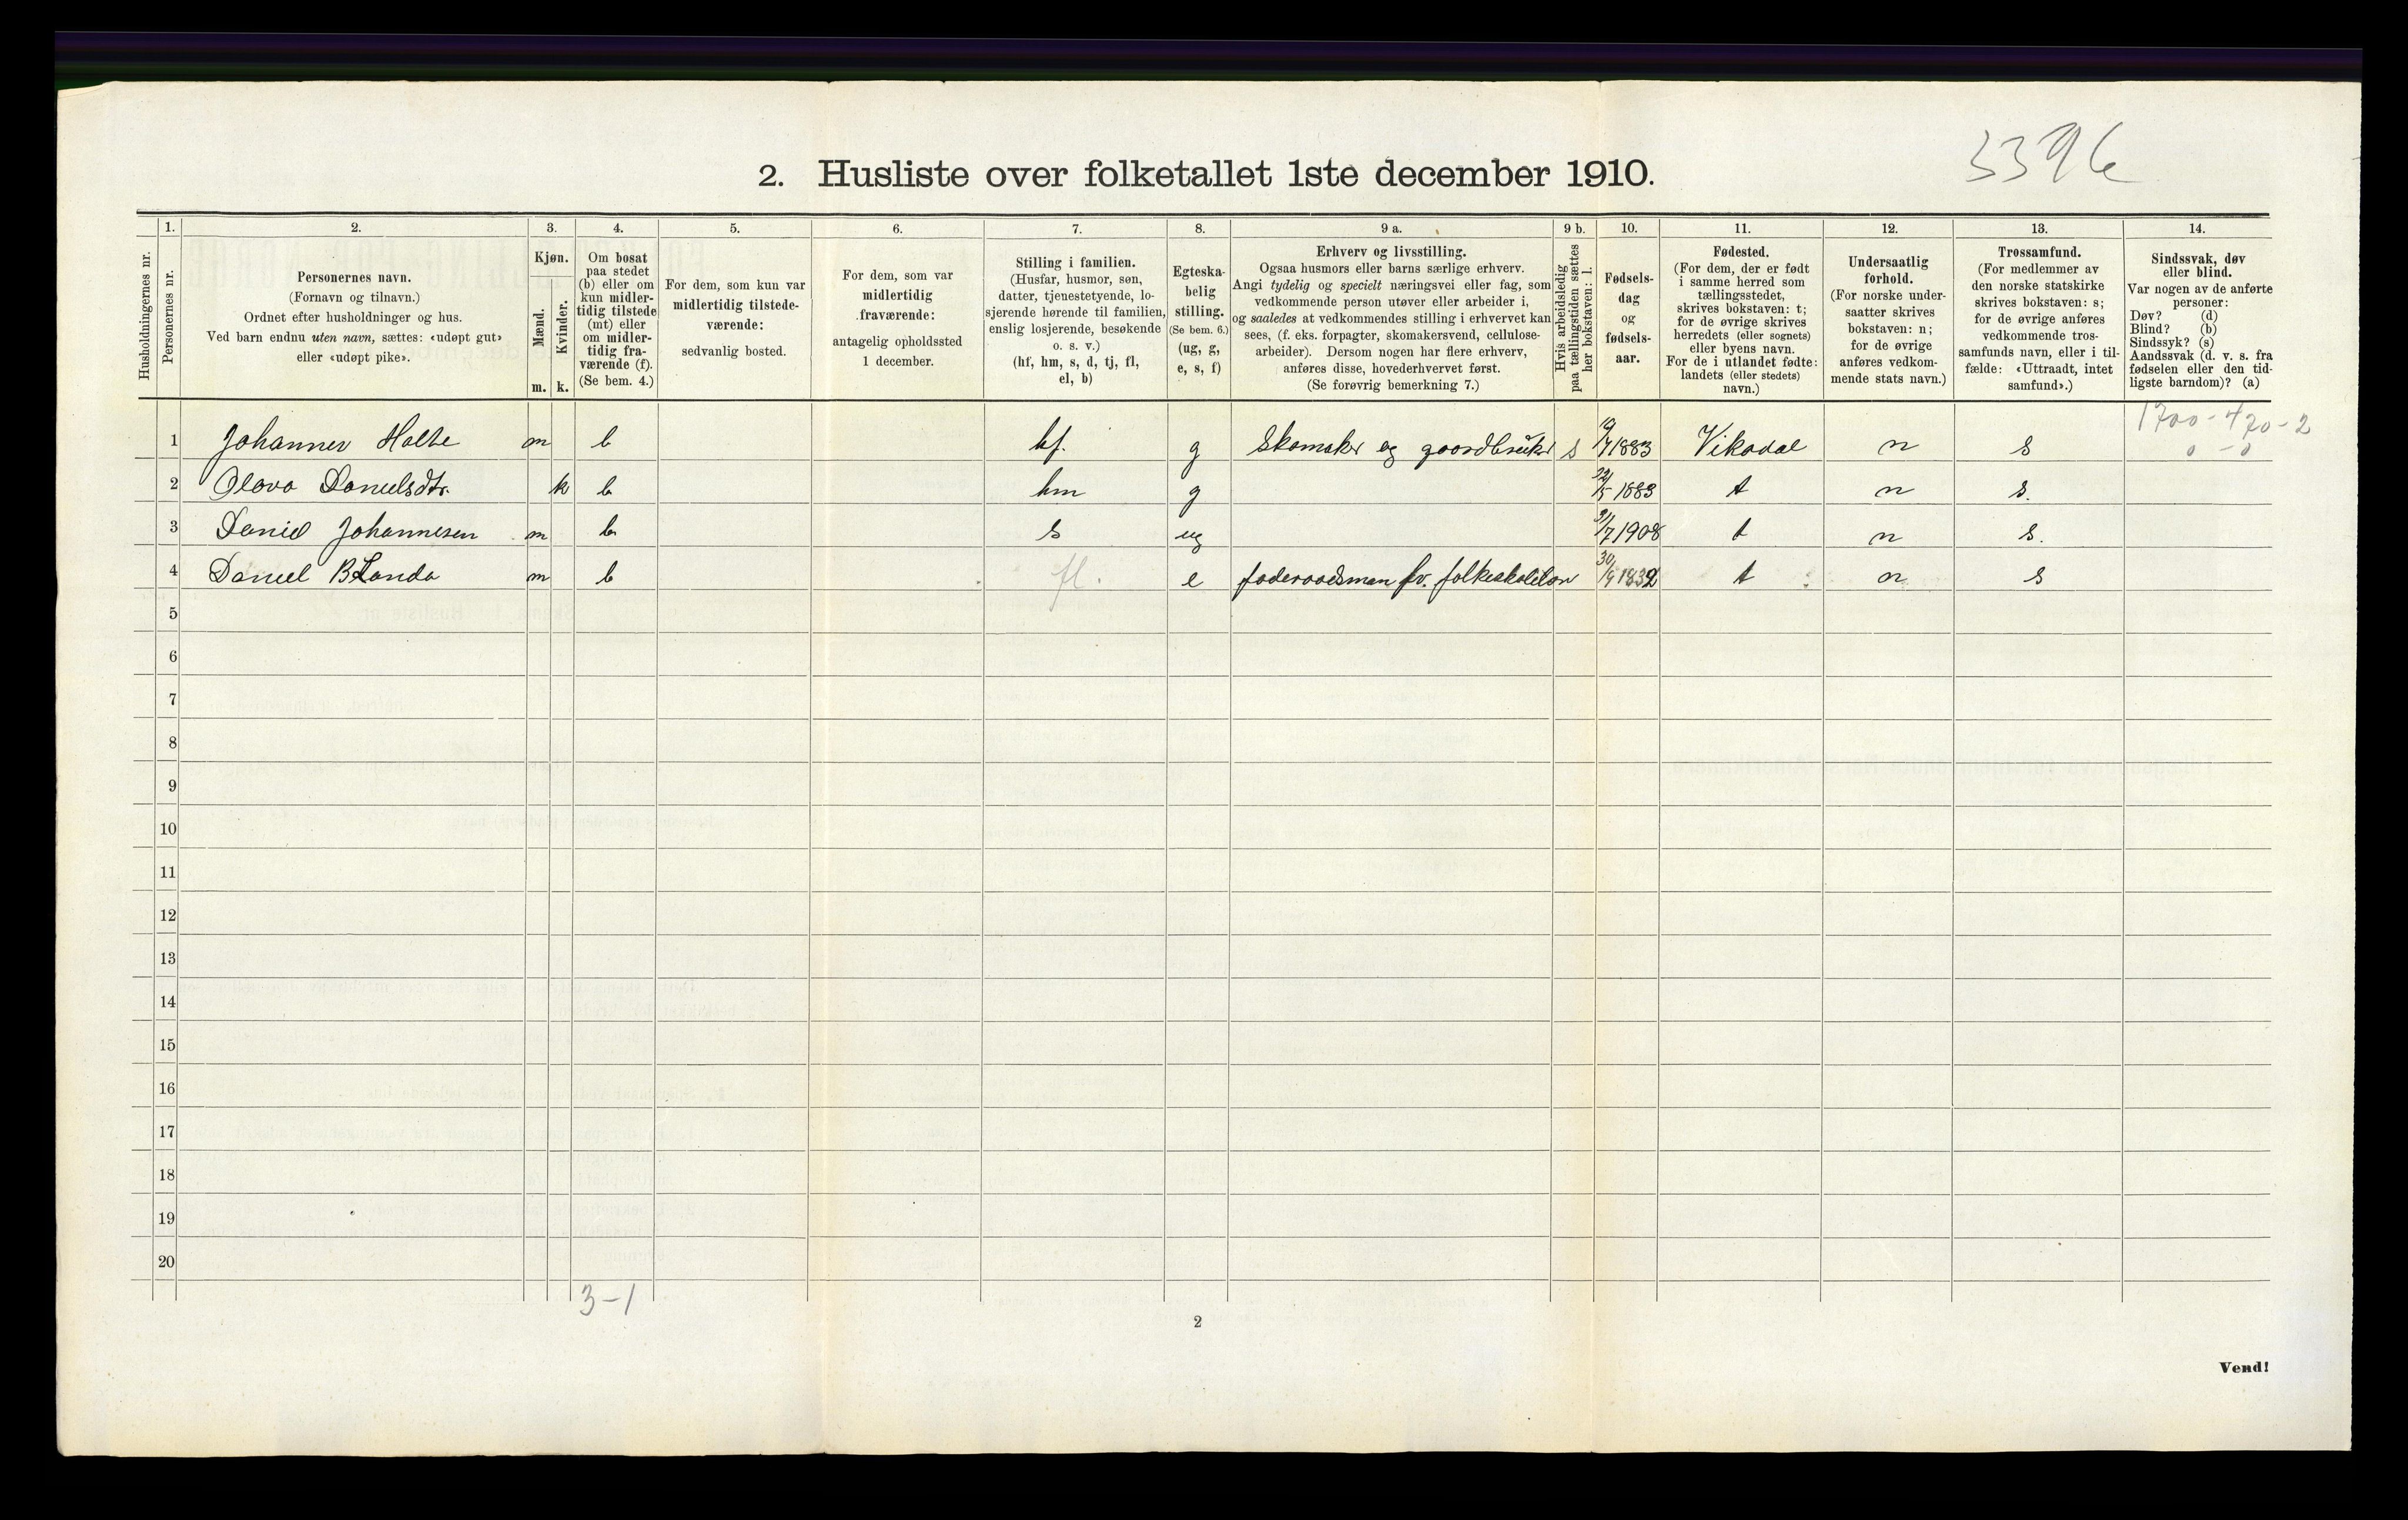 3396
2. Husliste over folketallet 1ste december 1910.
Husholdningernes nr.
1.
Personernes nr.
2.
Personernes navn.
(Fornavn og tilnavn.)
Ordnet efter husholdninger og hus.
Ved barn endnu uten navn, sættes: «udøpt gut»
eller «udøpt pike».
3.
Kjøn.
Mænd.
Kvinder.
m. k.
4.
Om bosat
paa stedet
(b) eller om
kun midler-
tidig tilstede
(mt) eller
om midler-
tidig fra-
værende (f).
(Se bem. 4.)
5.
For dem, som kun var
midlertidig tilstede-
værende:
sedvanlig bosted.
6.
For dem, som var
midlertidig
fraværende:
antagelig opholdssted
1 december.
7.
Stilling i familien.
(Husfar, husmor, søn,
datter, tjenestetyende, lo-
sjerende hørende til familien,
enslig losjerende, besøkende
o. s. v.)
(hf, hm, s, d, tj, fl,
el, b)
8.
Egteska-
belig
stilling.
(Se bem. 6.)
(ug, g,
e, s, f)
9 a.
Erhverv og livsstilling.
Ogsaa husmors eller barns særlige erhverv.
Angi tydelig og specielt næringsvei eller fag, som
vedkommende person utøver eller arbeider i,
og saaledes at vedkommendes stilling i erhvervet kan
sees, (f. eks. forpagter, skomakersvend, cellulose-
arbeider). Dersom nogen har flere erhverv,
anføres disse, hovederhvervet først.
(Se forøvrig bemerkning 7.)
9 b.
Hvis arbeidsledig
paa tællingstiden sættes
her bokstaven: l.
10.
Fødsels-
dag
og
fødsels-
aar.
11.
Fødested.
(For dem, der er født
i samme herred som
tællingsstedet,
skrives bokstaven: t;
for de øvrige skrives
herredets (eller sognets)
eller byens navn.
For de i utlandet fødte:
landets (eller stedets)
navn.)
12.
Undersaatlig
forhold.
(For norske under-
saatter skrives
bokstaven: n;
for de øvrige
anføres vedkom-
mende stats navn.)
13.
Trossamfund.
(For medlemmer av
den norske statskirke
skrives bokstaven: s;
for de øvrige anføres
vedkommende tros-
samfunds navn, eller i til-
fælde: «Uttraadt, intet
samfund».)
14.
Sindssvak, døv
eller blind.
Var nogen av de anførte
personer:
Døv? (d)
Blind? (b)
Sindssyk? (s)
Aandssvak (d. v. s. fra
fødselen eller den tid-
ligste barndom)? (a)
1700-470-2
0 - 0
1 Johannes Holte m b hf. g Skomaker og gaardbruker s 19/7 1883 Vikadal n s
2 Olava Danielsdtr. k b hm g 22/5 1883 t n s.
3 Daniel Johannesen m b s ug 21/7 1908 t n s.
4 Daniel B Landa m b fl. e foderaadsman fv. 30/9 1832 t n s
5
6
7
8
9
10
11
12
13
14
15
16
17
18
19
20
3-1
2
Vend!